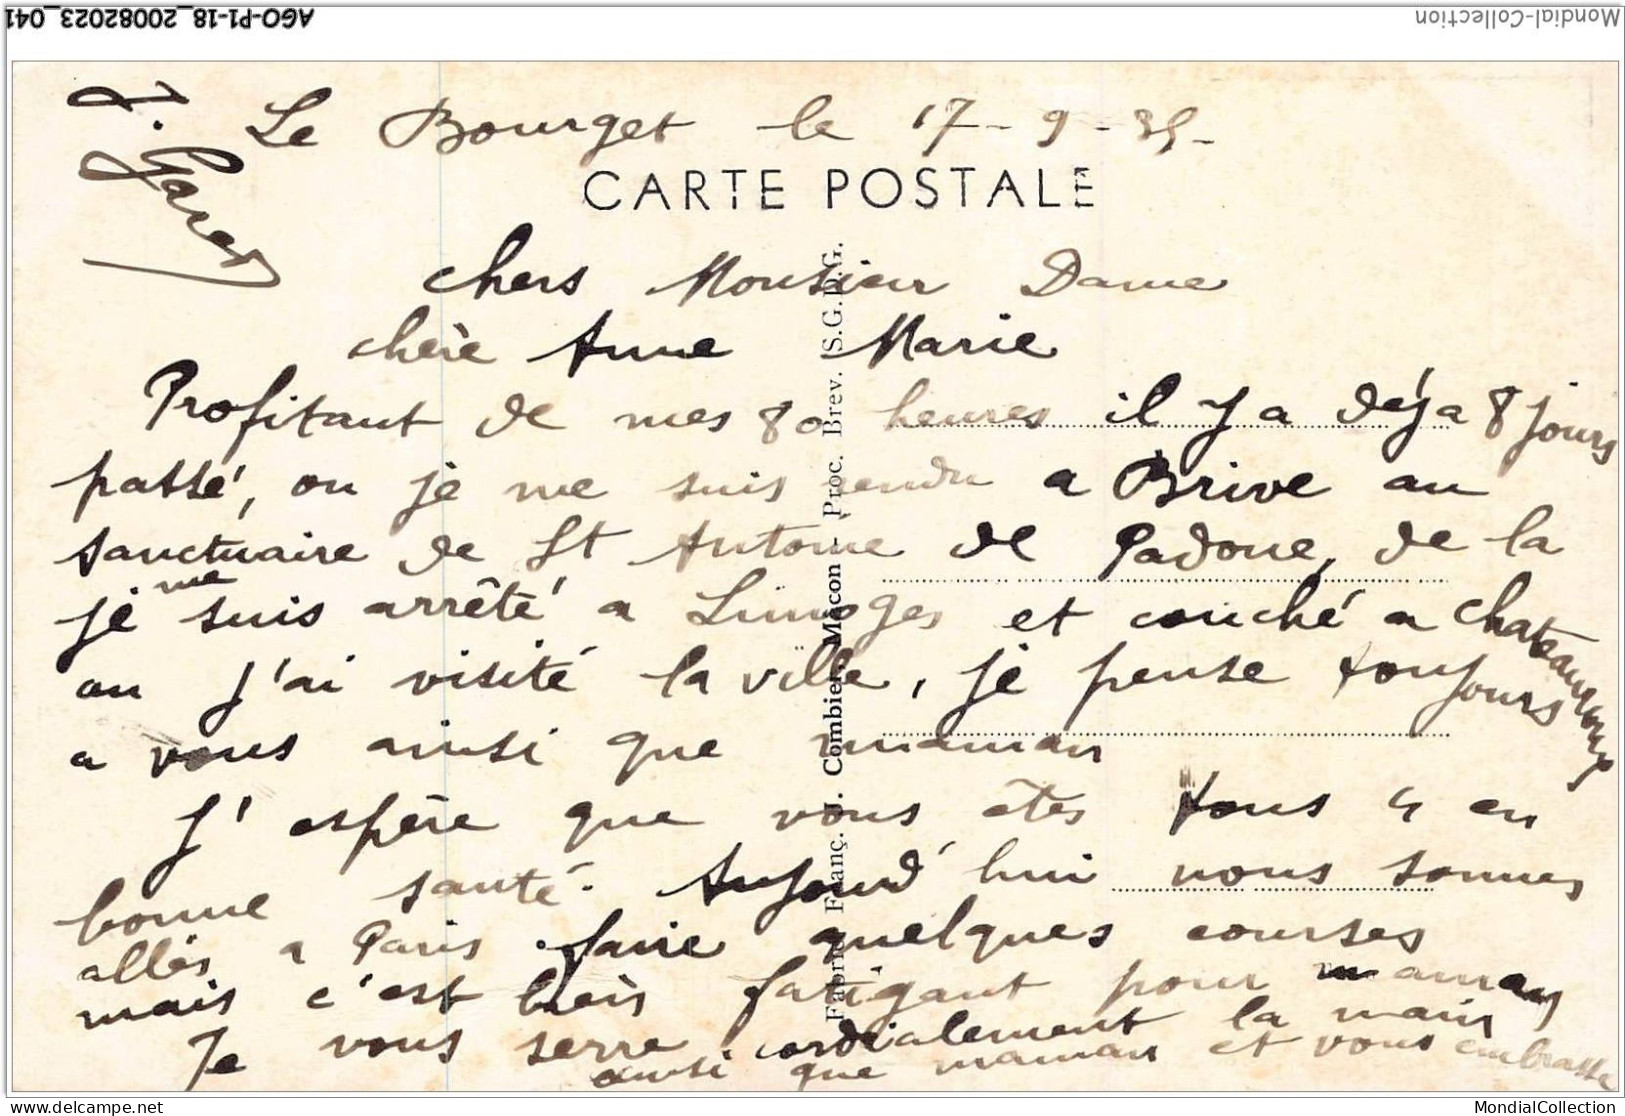 AGO-P1-18_20082023_041
Mondial-Collection
Le Bourget le 17-9-35-
CARTE POSTALE
chers Monsieur Dame
chère Anne Marie
Profitant de mes 80 heures il y a déja 8 jours
passé, ou je me suis rendu a Brive au
sanctuaire de St Antoine de Padoue, de la
je me suis arrêté a Limoges et couché a Chateauroux
ou j'ai visité la ville, je pense toujours
a vous ainsi que maman
J'espère que vous êtes tous 4 en
bonne santé. Aujourd'hui nous sommes
allés a Paris faire quelques courses
mais c'est bien fatigant pour maman
Je vous serre cordialement la main
ainsi que maman et vous embrasse
J.
Fabric. Franç. J. Combier Macon - Proc. Brev. S.G.D.G.
MondialCollection